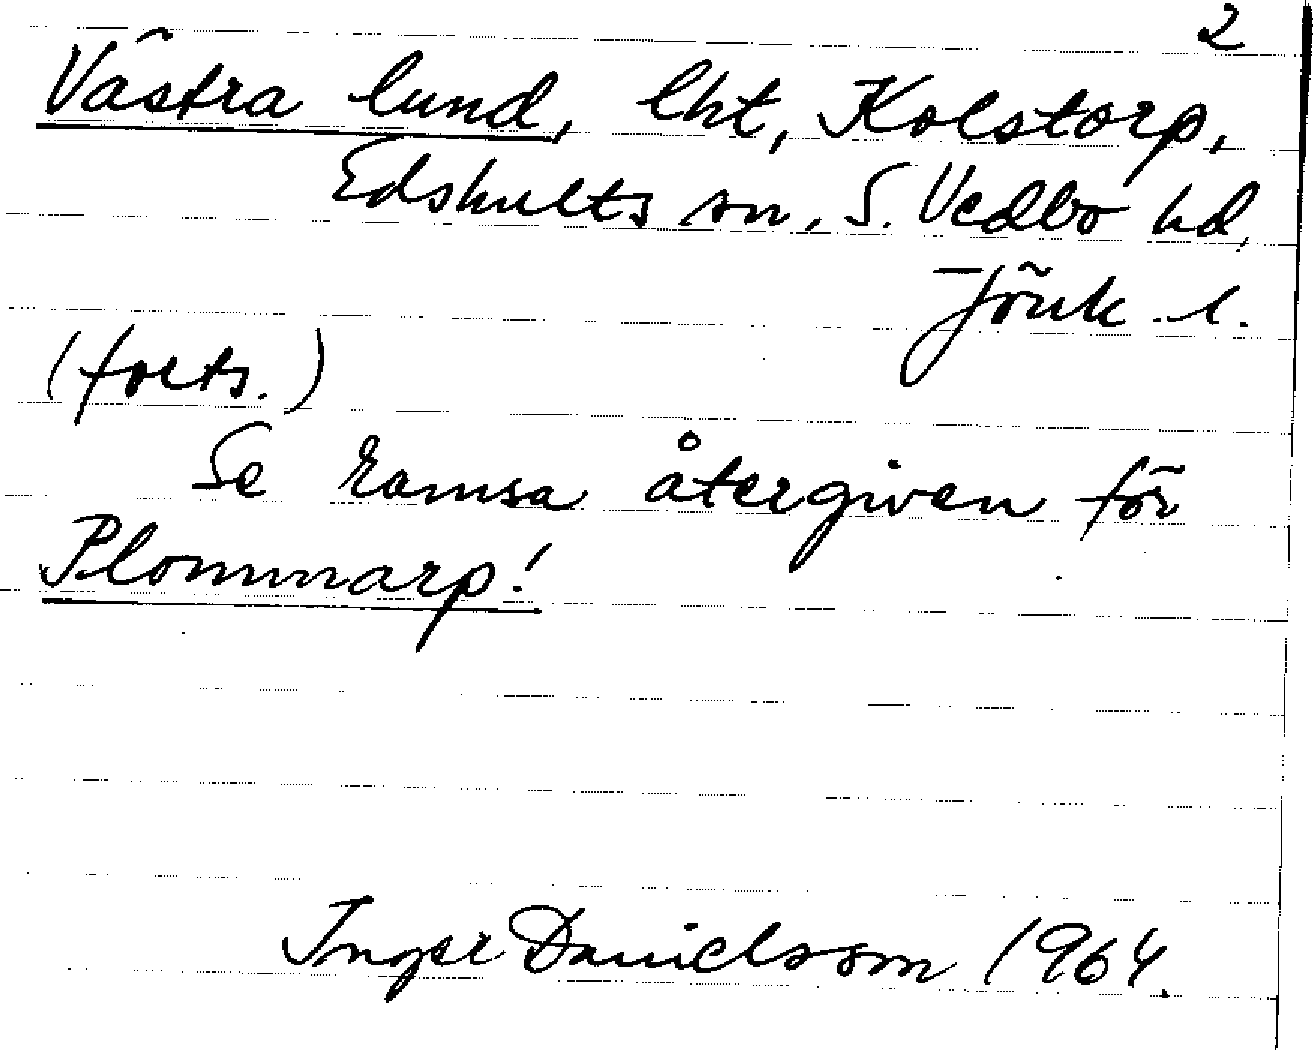 2
Västra lund, lht, Kolstorp,
Edshults sn, S. Vedbo hd,
Jönk. l.
(forts.)
Se ramsa återgiven för
Plommarp!
Inger Danielsson 1964.